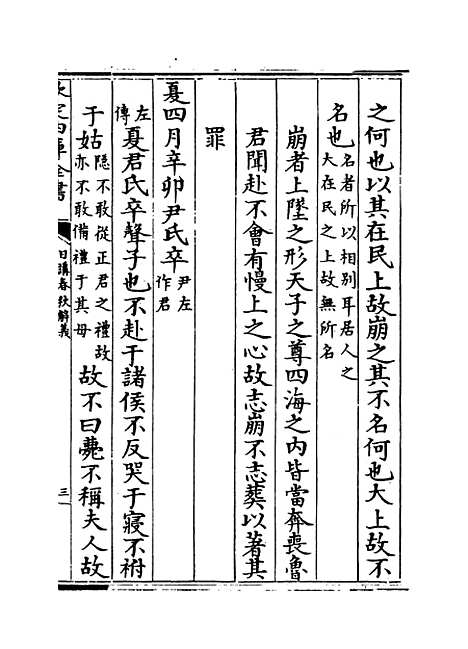 之何也以其在民上故崩之其不名何也大上故不
名也名者所以相别耳居人之
大在民之上故無所名
崩者上墜之形天子之尊四海之内皆當奔喪魯
君聞赴不會有慢上之心故志崩不志葬以著其
罪
夏四月辛卯尹氏卒尹左
作君
左
傳夏君氏卒聲子也不赴于諸侯不反哭于寢不祔
于姑隐不敢從正君之禮故
亦不敢備禮于其母故不曰薨不稱夫人故
欽定四庫全書
日講春秋解義
三